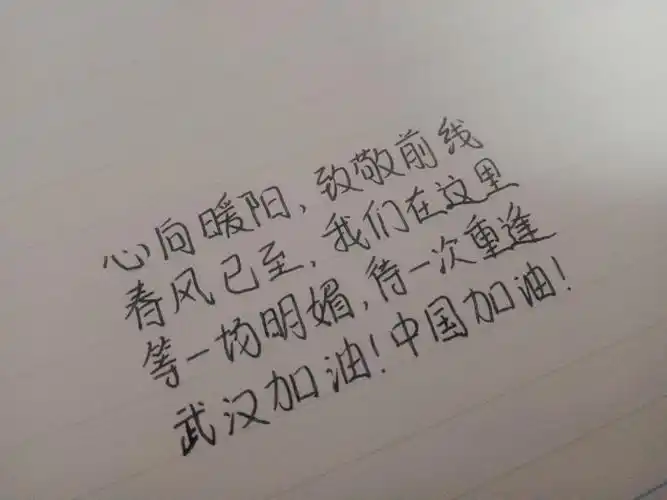 心向暖阳,致敬前线
春风已至,我们在这里
等一场明媚,待一次重逢
武汉加油!中国加油!